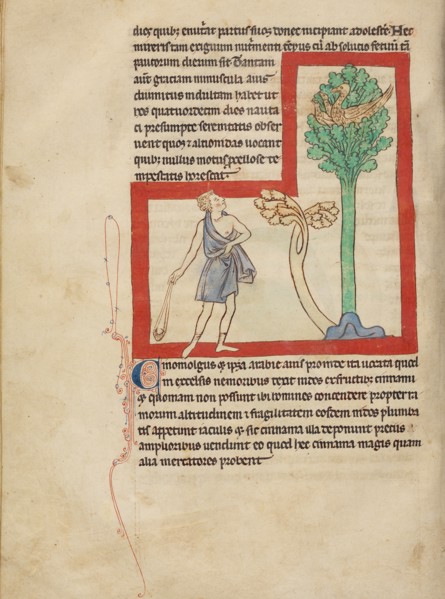 dies quibꝫ enutrit partus suos donec incipiant adolescere Hec
exiguum nutrimenti tēpus
paucorum dierum sit Tantam
aut̄ graciam minuscula auis
diuinitus indultam habet ut
hos quatuordecim dies nauta
ci presumpte serenitatis obser
uent quos ⁊ altionidas uocant
quibꝫ nullus motus ꝓcellose te
mpestatis horescat
Cinomolgus ipsa arabie auis proinde ita uocata quod
in excelsis nemoribus texit nidos ex fructibꝫ cinnami
⁊ quoniam non possunt ibi homines conscendere propter ra
morum altitudinem ⁊ fragilitatem eosdem nidos plumba
tis appetunt iaculis ⁊ sic cinnama illa deponunt preciis
amplioribus uendunt eo quod hec cinnama magis quam
alia mercatores probent